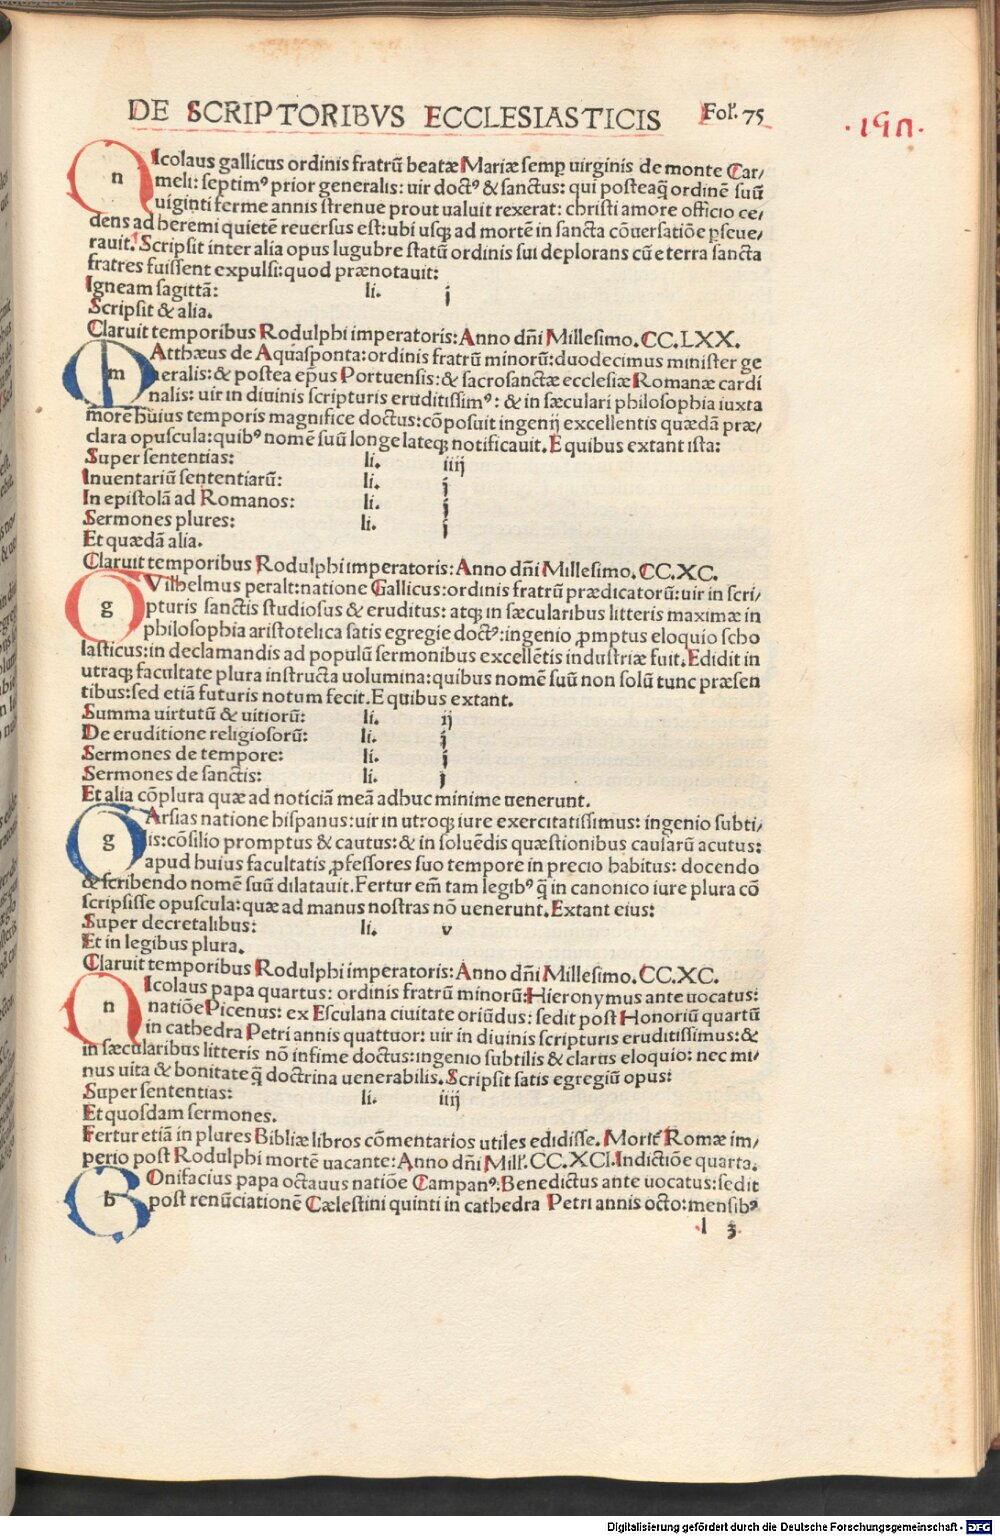 DE SCRIPTORIBVS ECCLESIASTICIS Fol'. 75
nIcolaus gallicus ordinis fratrũ beatæ Mariæ semꝑ uirginis de monte Car/
meli: septimꝰ prior generalis: uir doctꝰ & sanctus: qui posteaq̃ ordinẽ suũ
uiginti ferme annis strenue prout ualuit rexerat: christi amore officio ce/
dens ad heremi quietẽ reuersus est: ubi usqꝫ ad mortẽ in sancta cõuersatiõe ꝑseue/
rauit. Scripsit inter alia opus lugubre statũ ordinis sui deplorans cũ e terra sancta
fratres fuissent expulsi: quod prænotauit:
Igneam sagittã: li. j
Scripsit & alia.
Claruit temporibus Rodulphi imperatoris: Anno dñi Millesimo. CC. LXX.
mAtthæus de Aquasponta: ordinis fratrũ minorũ: duodecimus minister ge
neralis: & postea ep̃us Portuensis: & sacrosanctæ ecclesiæ Romanæ cardi
nalis: uir in diuinis scripturis eruditissimꝰ: & in sæculari philosophia iuxta
morẽ huius temporis magnifice doctus: cõposuit ingenij excellentis quædã præ/
clara opuscula: quibꝰ nomẽ suũ longe lateqꝫ notificauit. E quibus extant ista:
Super sententias: li. iiij
Inuentariũ sententiarũ: li. j
In epistolã ad Romanos: li. j
Sermones plures: li. j
Et quædã alia.
Claruit temporibus Rodulphi imperatoris: Anno dñi Millesimo. CC. XC.
gVilhelmus peralt: natione Gallicus: ordinis fratrũ prædicatorũ: uir in scri/
pturis sanctis studiosus & eruditus: atqꝫ in sæcularibus litteris maximæ in
philosophia aristotelica satis egregie doctꝰ: ingenio ꝓmptus eloquio scho
lasticus: in declamandis ad populũ sermonibus excellẽtis industriæ fuit. Edidit in
utraqꝫ facultate plura instructa uolumina: quibus nomẽ suũ non solũ tunc præsen
tibus: sed etiã futuris notum fecit. E quibus extant.
Summa uirtutũ & uitiorũ: li. ij
De eruditione religiosorũ: li. j
Sermones de tempore: li. j
Sermones de sanctis: li. j
Et alia cõplura quæ ad noticiã meã adhuc minime uenerunt.
gArsias natione hispanus: uir in utroqꝫ iure exercitatissimus: ingenio subti/
lis: cõsilio promptus & cautus: & in soluẽdis quæstionibus causarũ acutus:
apud huius facultatis ꝓfessores suo tempore in precio habitus: docendo
& scribendo nomẽ suũ dilatauit. Fertur em̃ tam legibꝰ q̃ in canonico iure plura cõ
scripsisse opuscula: quæ ad manus nostras nõ uenerunt. Extant eius:
Super decretalibus: li. v
Et in legibus plura.
Claruit temporibus Rodulphi imperatoris: Anno dñi Millesimo. CC. XC.
nIcolaus papa quartus: ordinis fratrũ minorũ: Hieronymus ante uocatus:
natiõe Picenus: ex Esculana ciuitate oriũdus: sedit post Honoriũ quartũ
in cathedra Petri annis quattuor: uir in diuinis scripturis eruditissimus: &
in sæcularibus litteris nõ infime doctus: ingenio subtilis & clarus eloquio: nec mi/
nus uita & bonitate q̃ doctrina uenerabilis. Scripsit satis egregiũ opus:
Super sententias: li. iiij
Et quosdam sermones.
Fertur etiã in plures Bibliæ libros cõmentarios utiles edidisse. Moritꝰ Romæ im/
perio post Rodulphi mortẽ uacante: Anno dñi Mill'. CC. XCI. Indictiõe quarta.
bOnifacius papa octauus natiõe Campanꝰ: Benedictus ante uocatus: sedit
post renũciationẽ Cælestini quinti in cathedra Petri annis octo: mensibꝰ
l 3
Digitalisierung gefördert durch die Deutsche Forschungsgemeinschaft - DFG